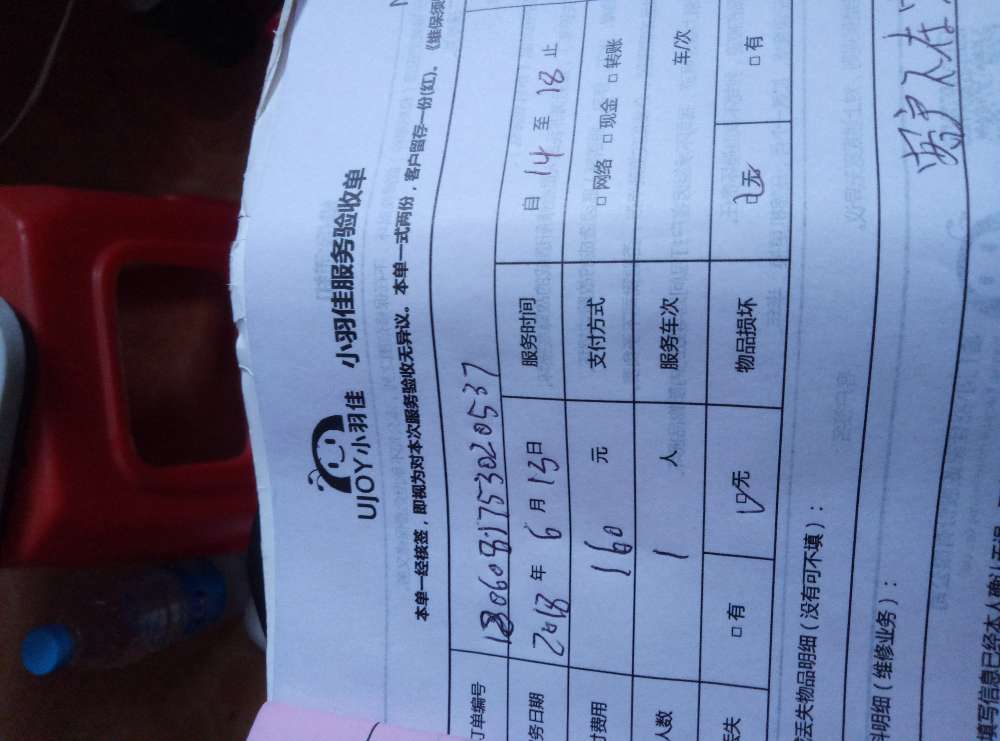 UJOY小羽佳 小羽佳服务验收单
本单一经核签，即视为对本次服务验收无异议。 本单一式两份，客户留存一份(红)。《维保须
订单编号 1806081753020537
务日期 2018 年 6 月 13 日 服务时间 自 14 至 18 止
付费用 160 元 支付方式 □ 网络 □ 现金 □ 转账
人数 1 人 服务车次 车/次
丢失 □ 有 □ 无 物品损坏 □ 无 □ 有
丢失物品明细（没有可不填）：
料明细（维修业务）：
客户不在
填写信息已经本人确认无误